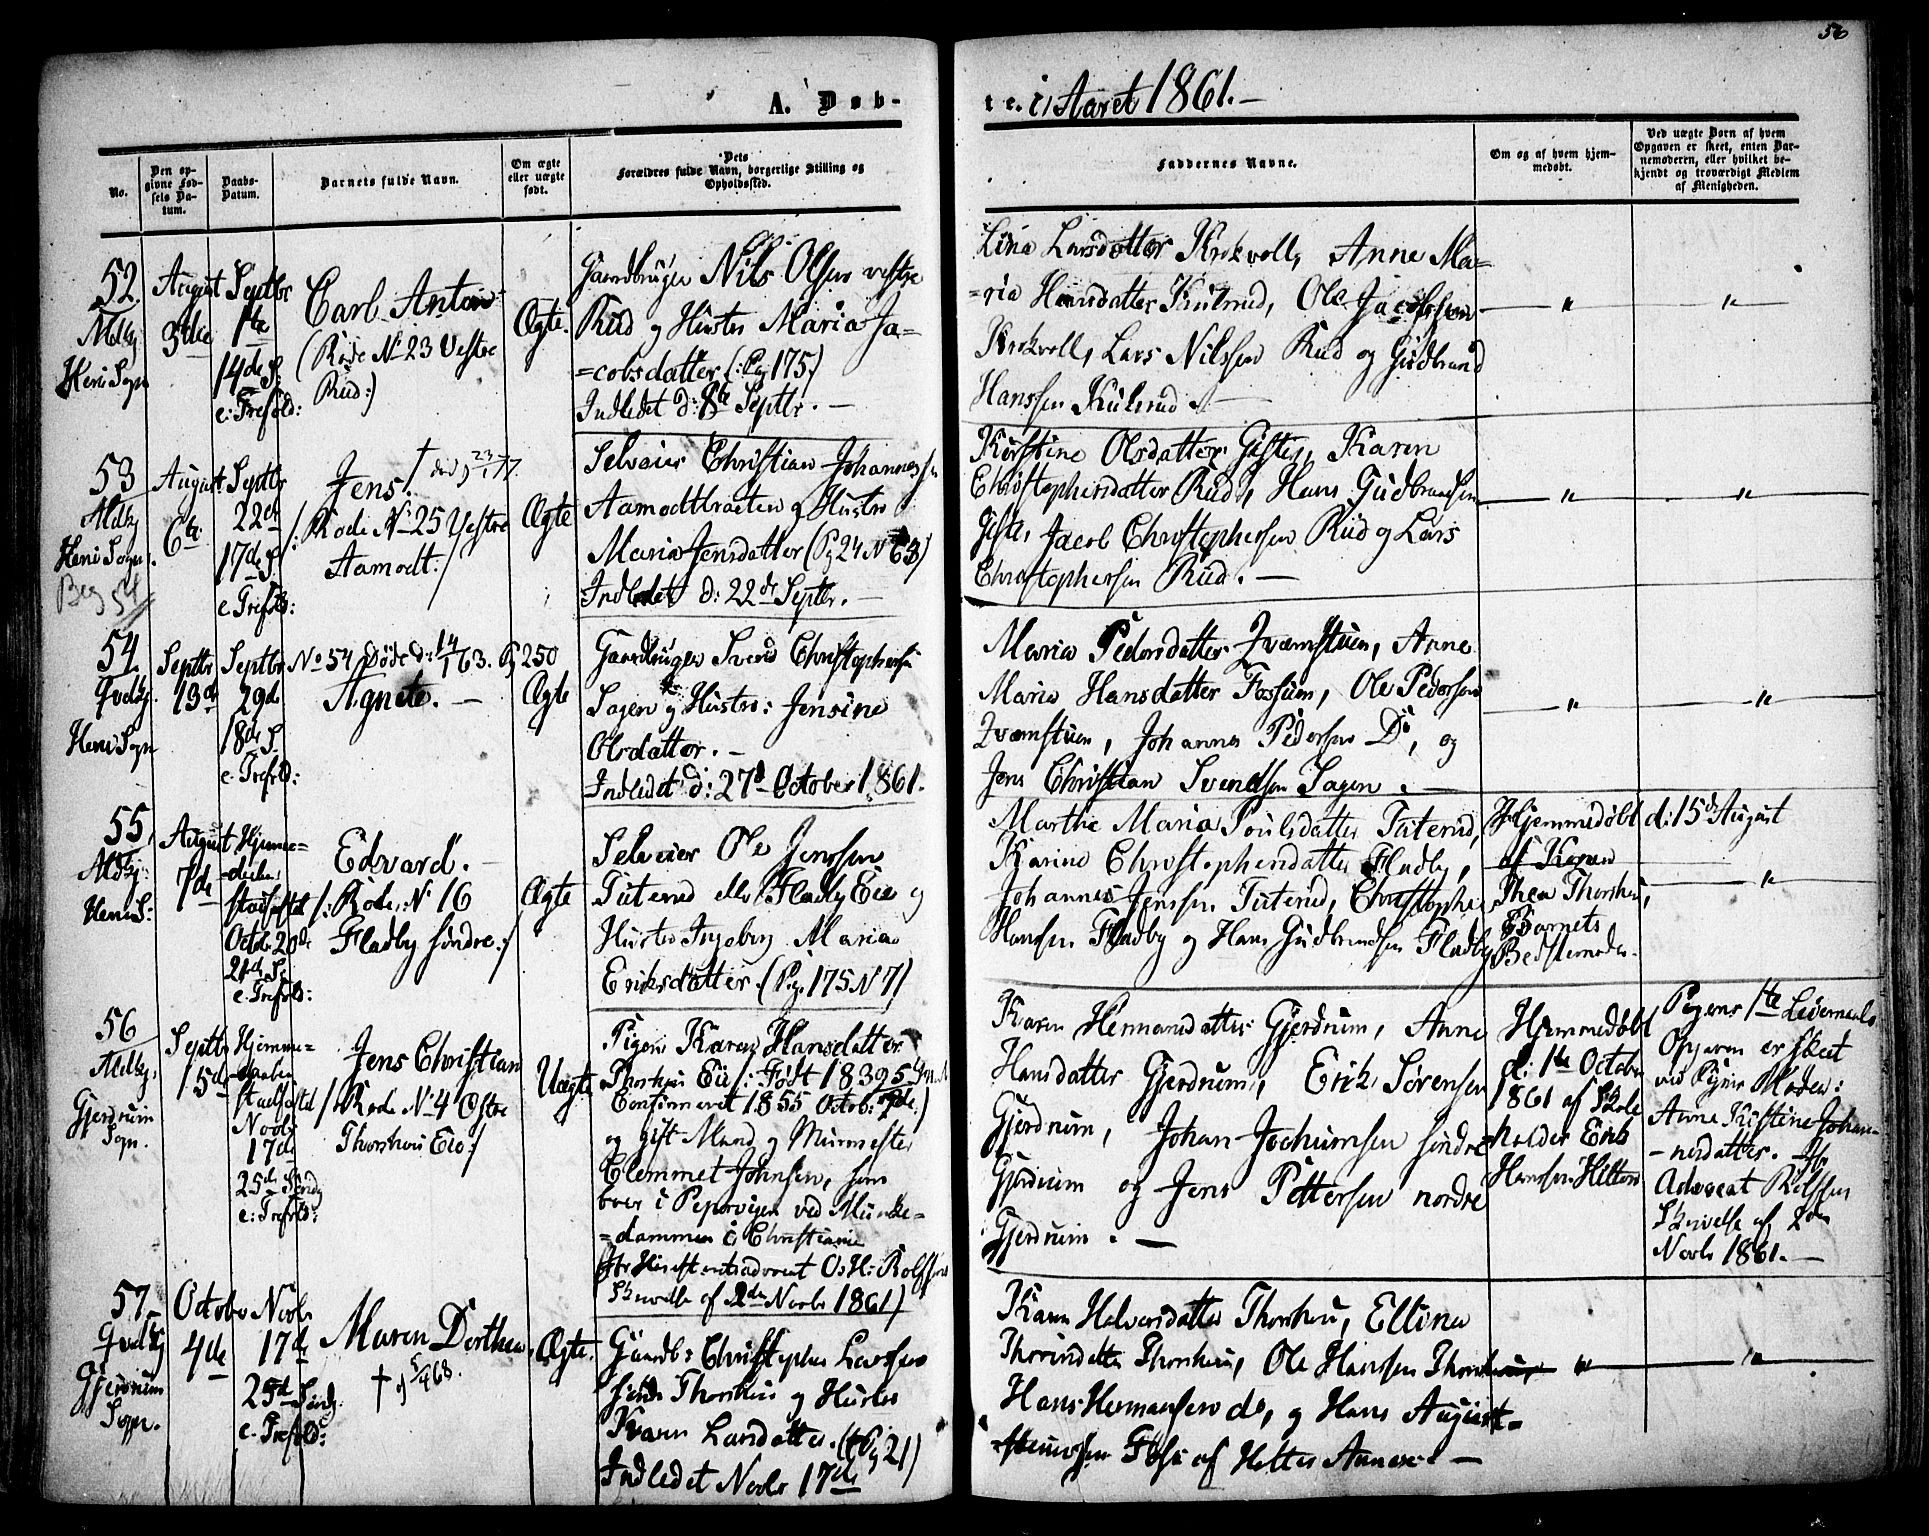 56
A. Døb-
te. i Aaret 1861.-
No.
Den op-
givne Fød-
sels Da-
tum.
Daabs-
Datum.
Barnets fulde Navn.
Om ægte
eller uægte
født.
Dets
Forældres fulde Navn, borgerlige Stilling og
Opholdssted.
Faddernes Navne.
Om og af hvem hjem-
medøbt.
Ved uægte Børn af hvem
Opgaven er skeet, enten Bar-
nemoderen, eller hvilket be-
kjendt og troværdigt Medlem
af Menigheden.
52.
Heni Sogn
August
3die
Septbr
1ste
14de S:
e: Trefold:
Carl Anton
(Rode No 23 Vestre
Rud:)
Ægte.
Gaardbruger Nils Olsen vestre
Rud og Hustro Maria Ja-
=cobsdatter (: Pg 175)
Indledet d: 8de Septbr. -
Lina Larsdatter Krokvoll, Anne Ma=
=ria Hansdatter Kulsrud, Ole Jacobsen
Krokvoll, Lars Nilssen Rud og Gudbrand
Hanssen Kulsrud. -
- " -
"
53
Heni Sogn.
Beg 54
August
6te
Septbr
22de
17de S.
e. Trefold:
Jens! †
/: Rode No 25 Vestre
Aamodt:/
Ægte
Selveier Christian Johannessen
Aamodtbraaten og Hustro
Maria Jensdatter (Pg 24 N 63)
Indledet d: 22de Septbr. -
Kirstine Olsdatter Gister, Karen
Christophersdatter Rud, Hans Gudbrandsen
Gister, Jacob Christophersen Rud og Lars
Christophersen Rud. -
- " -
"
54.
Heni Sogn
Septbr
13de
Septbr
29de
18de S.
e. Trefold:
No 54 Døde d: 14/1 63. Pg 250
Agnete. -
Ægte
Gaardbruger Svend Christophersen
Sagen og Hustro: Jensine
Olsdatter. -
Indledet d: 27de October 1861.
Maria Pedersdatter Kvernstuen, Anne
Maria Hansdatter Fossum, Ole Pedersen
Kvernstuen, Johannes Pedersen Do, og
Jens Christian Svendsen Sagen. -
- " -
- "
55.
Heni S:
August
7de
Hjemme-
-døbt
stadfæstet
Octbr 20de
21de S.
e. Trefold:
Edvard. -
/: Rode No 16
Fladby søndre:/
Ægte
Selveier Ole Jenssen
Tuterud eller Fladby Eie og
Hustro Ingeborg Maria
Eriksdatter (Pg. 175 N 7)
Marthe Maria Poulsdatter Tuterud,
Karine Christophersdatter Fladby,
Johannes Jenssen Tuterud, Christopher
Hansen Fladby og Hans Gudbrandsen Fladby
Hjemmedøbt d: 15de August
af Karen
Thea Thorshou,
Barnets
Bedstemoder.
- "
56
Gjerdrum
Sogn.
Septbr
15de
Hjemme-
-daaben
stadfæstet
Novbr
17de
25de Søndg
e: Trefold:
Jens Christian
/: Rode No 4 Østre
Thorshou Eie:/
Uægte
Pigen Karen Hansdatter
Thorshou Eie /: Født 1839
Confirmeret 1855 Octob: 7de)
og gift Mand og Muurmester
Clemmet Johnsen, som
boer i Pipervigen ved Munke-
=dammen i Christiania
Skrivelse af 2den Novbr 1861)
Karen Hermansdatter Gjerdrum, Anne
Hansdatter Gjerdrum, Erik Sørensen
Gjerdrum, Johan Jochumsen søndre
Gjerdrum og Jens Pettersen nordre
Gjerdrum. -
Hjemmedøbt
d: 1ste October
1861 af Skole
holder Erik
Hanssen Hilton
Pigens 1ste Leiermaals
Opgaven er skeet
ved Pigens Moder:
Anne Kirstine Johan-
-nesdatter.
Advocat Rolfsen
Skrivelse af 2den
Novbr 1861. -
57
Gjerdrum
Sogn.
October
4de
Novbr
17de
25de Søndg.
e. Trefold:
Maren Dorthea.
† 5/9 68.
Ægte.
Gaardb: Christopher Larssen
søndre Thorshou og Hustro
Karen Larsdatter. (Pg 21)
Indledet Novbr 17de
Karen Halvorsdatter Thorshou, Elline
Thorsdatter Thorshou, Ole Hanssen Thorshou,
Hans Hermansen do, og Hans August
af Hetter Annexe. -
"
"